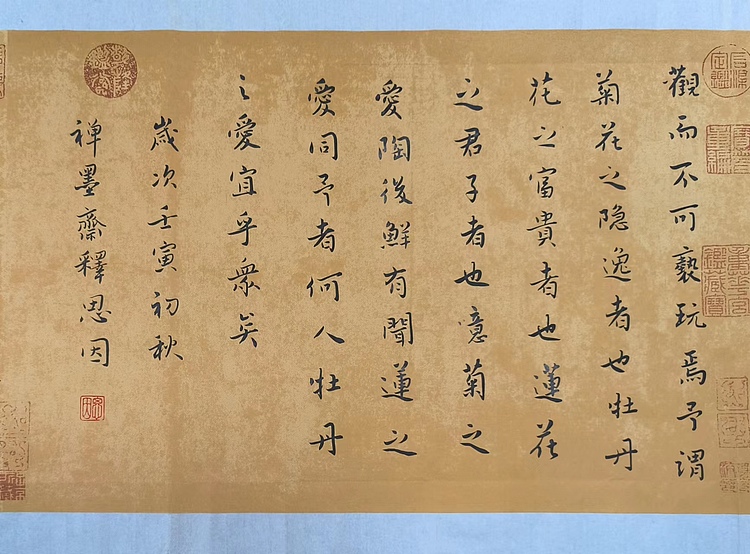 石渠定鑑
寶笈重編
重華宮鑑藏寶
觀而不可褻玩焉予謂
菊花之隐逸者也牡丹
花之富貴者也蓮花
之君子者也噫菊之
愛陶後鮮有聞蓮之
愛同予者何人牡丹
之愛宜乎衆矣
歲次壬寅初秋
禅墨齋釋思因